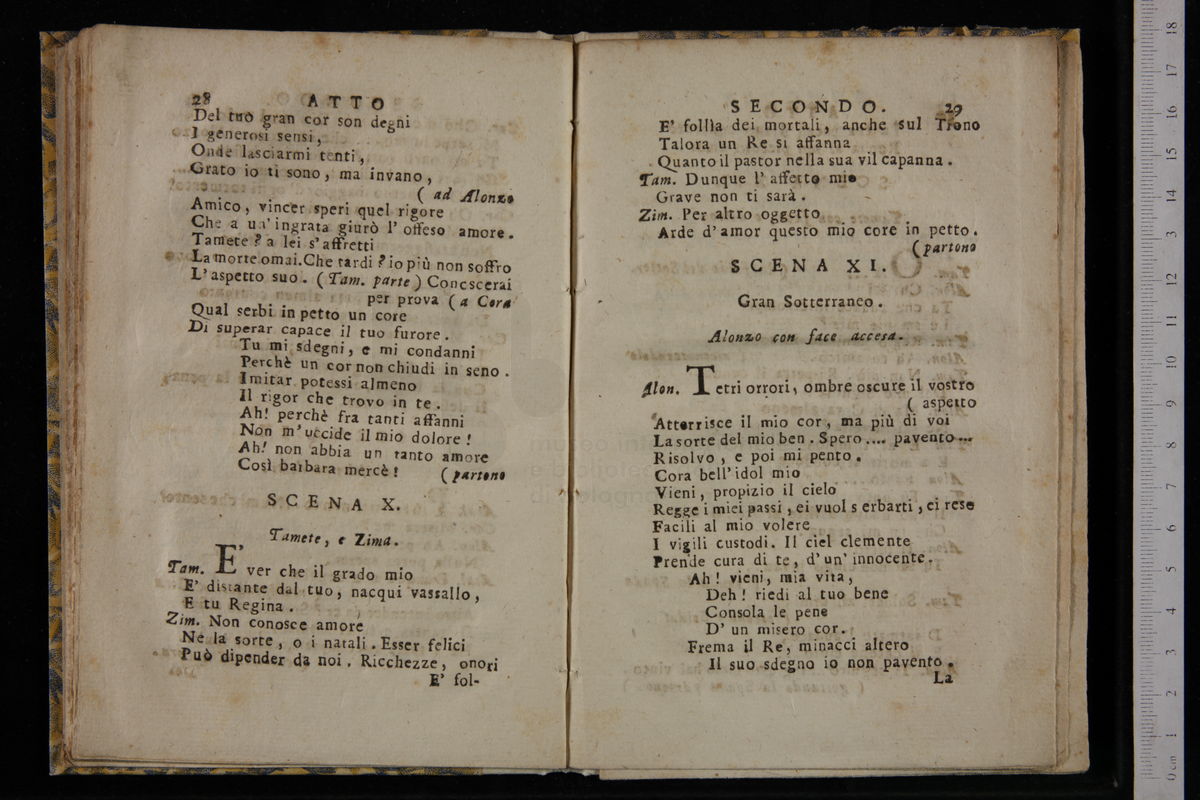 28 ATTO
Del tuo gran cor son degni
I generosi sensi,
Onde lasciarmi tenti,
Grato io ti sono, ma invano,
( ad Alonzo
Amico, vincer speri quel rigore
Che a un' ingrata giurò l' offeso amore.
Tamete ? a lei s' affretti
La morte omai. Che tardi ? io più non soffro
L' aspetto suo. ( Tam. parte ) Conescerai
per prova ( a Cora
Qual serbi in petto un core
Di superar capace il tuo furore.
Tu mi sdegni, e mi condanni
Perchè un cor non chiudi in seno.
Imitar potessi almeno
Il rigor che trovo in te.
Ah! perchè fra tanti affanni
Non m' uccide il mio dolore !
Ah! non abbia un tanto amore
Così barbara mercè ! ( partono
SCENA X.
Tamete, e Zima.
Tam. E' ver che il grado mio
E' distante dal tuo, nacqui vassallo,
E tu Regina.
Zim. Non conosce amore
Nè la sorte, o i natali. Esser felici
Può dipender da noi. Ricchezze, onori
E' fol-
SECONDO. 29
E' follìa dei mortali, anche sul Trono
Talora un Re si affanna
Quanto il pastor nella sua vil capanna.
Tam. Dunque l' affetto mio
Grave non ti sarà.
Zim. Per altro oggetto
Arde d' amor questo mio core in petto.
( partono
SCENA XI.
Gran Sotterraneo.
Alonzo con face accesa.
Alon. Tetri orrori, ombre oscure il vostro
( aspetto
Atterrisce il mio cor, ma più di voi
La sorte del mio ben. Spero .... pavento ...
Risolvo, e poi mi pento.
Cora bell' idol mio
Vieni, propizio il cielo
Regge i miei passi, ei vuol s erbarti, ei rese
Facili al mio volere
I vigili custodi. Il ciel clemente
Prende cura di te, d' un' innocente.
Ah ! vieni, mia vita,
Deh ! riedi al tuo bene
Consola le pene
D' un misero cor.
Frema il Re, minacci altero
Il suo sdegno io non pavento.
La